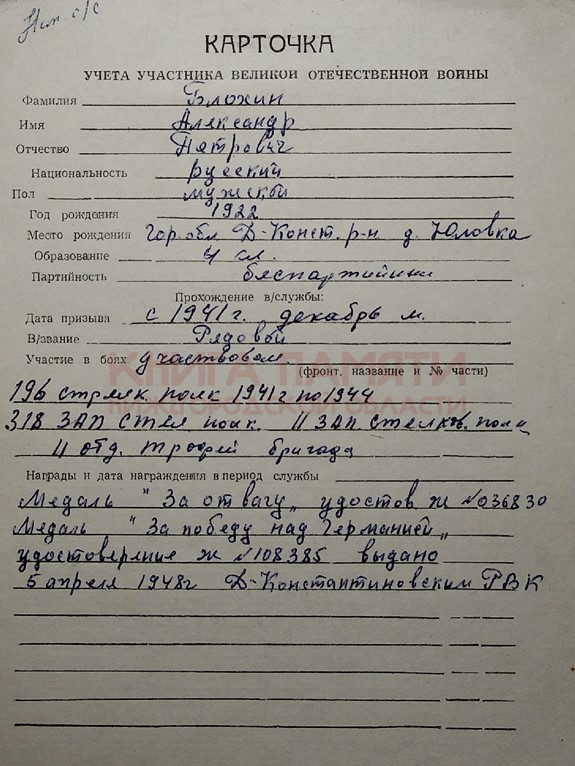 с/с
КАРТОЧКА
УЧЕТА УЧАСТНИКА ВЕЛИКОЙ ОТЕЧЕСТВЕННОЙ ВОЙНЫ
Фамилия Блохин
Имя Александр
Отчество Пятрович
Национальность русский
Пол мужской
Год рождения 1922
Место рождения Гор. обл Д-Конст. р-н д. Юловка
Образование 4 кл.
Партийность беспартийный
Прохождение в/службы:
Дата призыва с 1941 г. декабрь м.
В/звание Рядовой
Участие в боях участвовал.
(фронт, название и № части)
КНИГА ПАМЯТИ
НИЖЕГОРОДСКОЙ ОБЛАСТИ
196 стрелк полк 1941 г по 1944
318 ЗАП стел полк. 11 ЗАП стелков. полк
11 отд. трофей бригада
Награды и дата награждения в период службы
Медаль " За отвагу „ удостов. Ж №036830
Медаль " За победу над Германией „
удостоверение Ж №108385 выдано
5 апреля 1948г Д-Константиновским РВК